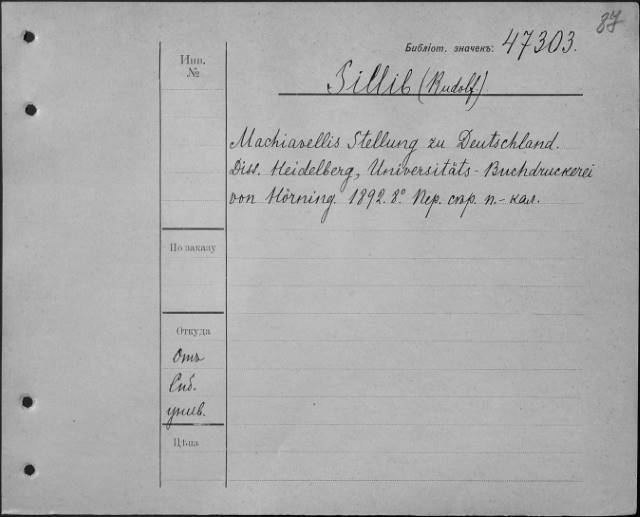 87
Библіот. значекъ: 47303.
Инв.
№
Sillib (Rudolf)
Machiavellis Stellung zu Deutschland.
Diss. Heidelberg, Universitäts-Buchdruckerei
von Hörning. 1892. 8° Пер. скр. п.-кал.
По заказу
Откуда
Отъ
Сиб.
унив.
Цѣна